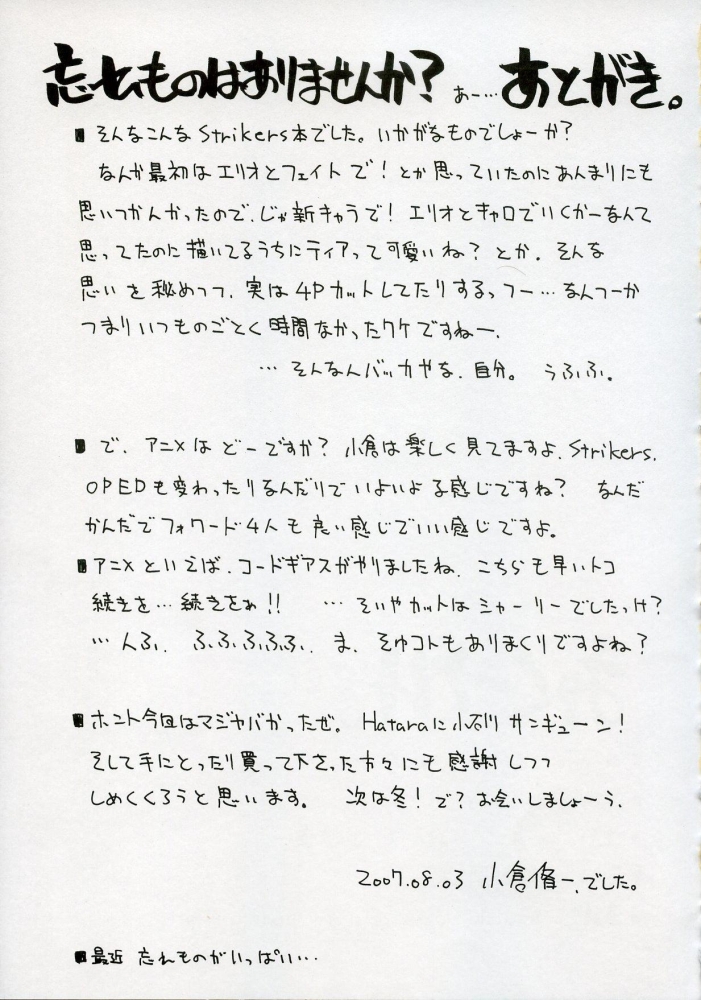 忘れものはありませんか? あー… あとがき。
■そんなこんなStrikers本でした。いかがなものでしょーか?
なんか最初はエリオとフェイトで!とか思っていたのにあんまりにも
思いつかんかったので、じゃ新キャラで!エリオとキャロでいくかーなんて
思ってたのに描いてるうちにティアって可愛いね?とか、そんな
思いを秘めつつ、実は4Pカットしてたりするっつー…なんつーか
つまりいつものごとく時間なかったワケですねー、
…そんなんバッカやな、自分。 うふふ。
■で、アニメはどーですか?小倉は楽しく見てますよ、Strikers.
OPEDも変わったりなんだりでいよいよな感じですね? なんだ
かんだでフォワード4人も良い感じでいい感じですよ。
■アニメといえば、コードギアスがやりましたね、こちらも早いトコ
続きを…続きをぉ!! …そいやカットはシャーリーでしたっけ?
…んふ、ふふふふふ、ま、そゆコトもありまくりですよね?
■ホント今回はマジヤバかったぜ。Hataraに小石川サンギューン!
そして手にとったり買って下さった方々にも感謝しつつ
しめくくろうと思います。 次は冬!で?お会いしましょーう、
2007.08.03 小倉脩一、でした。
■最近 忘れものがいっぱい…